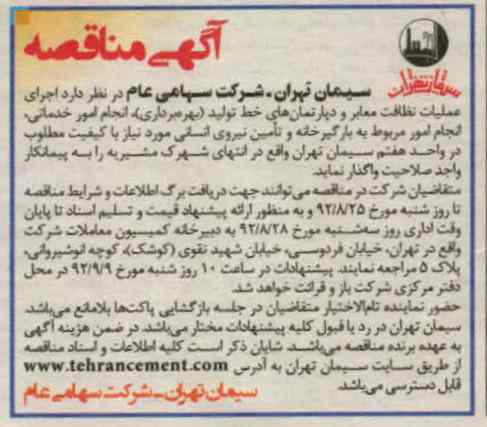 آگهی مناقصه
سیمان تهران
سیمان تهران ـ شرکت سهامی عام در نظر دارد اجرای
عملیات نظافت معابر و دپارتمان‌های خط تولید (بهره‌برداری)، انجام امور خدماتی،
انجام امور مربوط به بارگیرخانه و تأمین نیروی انسانی مورد نیاز با کیفیت مطلوب
در واحد هفتم سیمان تهران واقع در انتهای شهرک مشیریه را به پیمانکار
واجد صلاحیت واگذار نماید.
متقاضیان شرکت در مناقصه می‌توانند جهت دریافت برگ اطلاعات و شرایط مناقصه
تا روز شنبه مورخ ۹۲/۸/۲۵ و به منظور ارائه پیشنهاد قیمت و تسلیم اسناد تا پایان
وقت اداری روز سه‌شنبه مورخ ۹۲/۸/۲۸ به دبیرخانه کمیسیون معاملات شرکت
واقع در تهران، خیابان فردوسی، خیابان شهید تقوی (کوشک)، کوچه انوشیروانی،
پلاک ۵ مراجعه نمایند. پیشنهادات در ساعت ۱۰ روز شنبه مورخ ۹۲/۹/۹ در محل
دفتر مرکزی شرکت باز و قرائت خواهد شد.
حضور نماینده تام‌الاختیار متقاضیان در جلسه بازگشایی پاکت‌ها بلامانع می‌باشد.
سیمان تهران در رد یا قبول کلیه پیشنهادات مختار می‌باشد. در ضمن هزینه آگهی
به عهده برنده مناقصه می‌باشد. شایان ذکر است کلیه اطلاعات و اسناد مناقصه
از طریق سایت سیمان تهران به آدرس www.tehrancement.com
قابل دسترسی می‌باشد.
سیمان تهران ـ شرکت سهامی عام